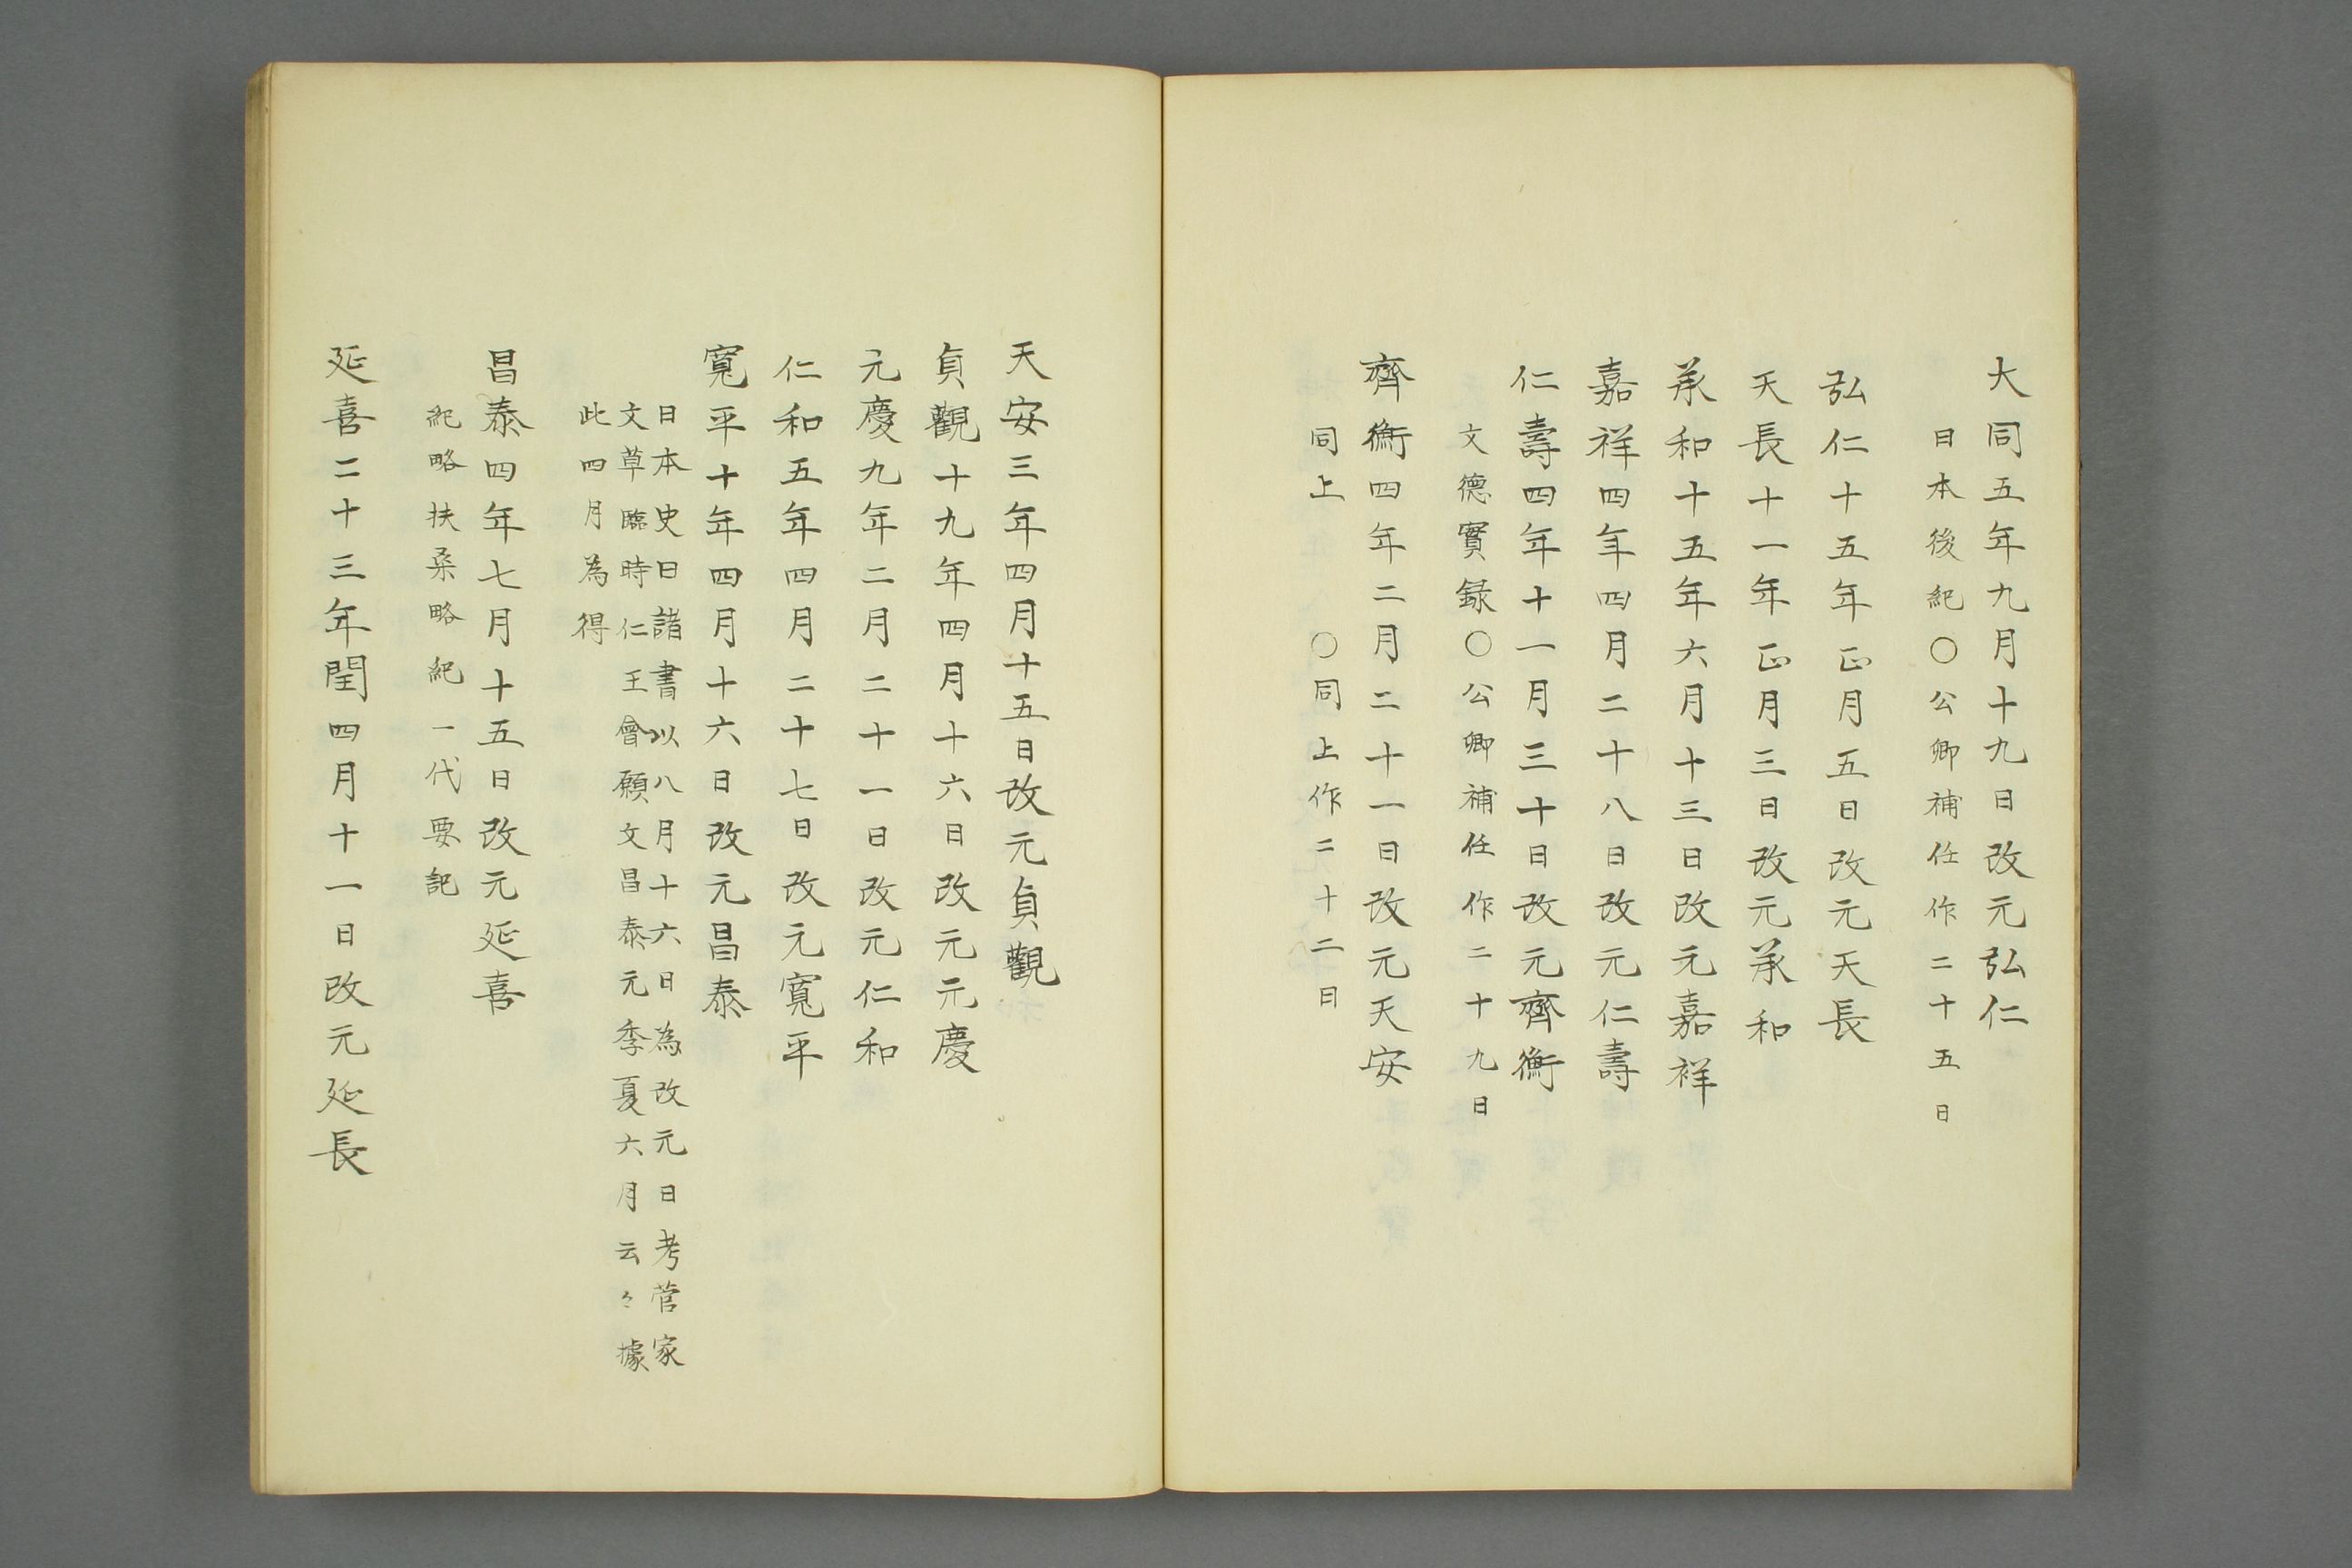 大同五年九月十九日改元弘仁
日本後紀○公卿補任作二十五日
弘仁十五年正月五日改元天長
天長十一年正月三日改元承和
承和十五年六月十三日改元嘉祥
嘉祥四年四月二十八日改元仁壽
仁壽四年十一月三十日改元齊衡
文德實録○公卿補任作二十九日
齊衡四年二月二十一日改元天安
同上　○同上作二十二日
天安三年四月十五日改元貞觀
貞觀十九年四月十六日改元元慶
元慶九年二月二十一日改元仁和
仁和五年四月二十七日改元寬平
寬平十年四月十六日改元昌泰
日本史曰諸書以八月十六日為改元日考菅家
文草臨時仁王會願文昌泰元季夏六月云々據
此四月為得
昌泰四年七月十五日改元延喜
紀略扶桒略紀一代要記
延喜二十三年閏四月十一日改元延長